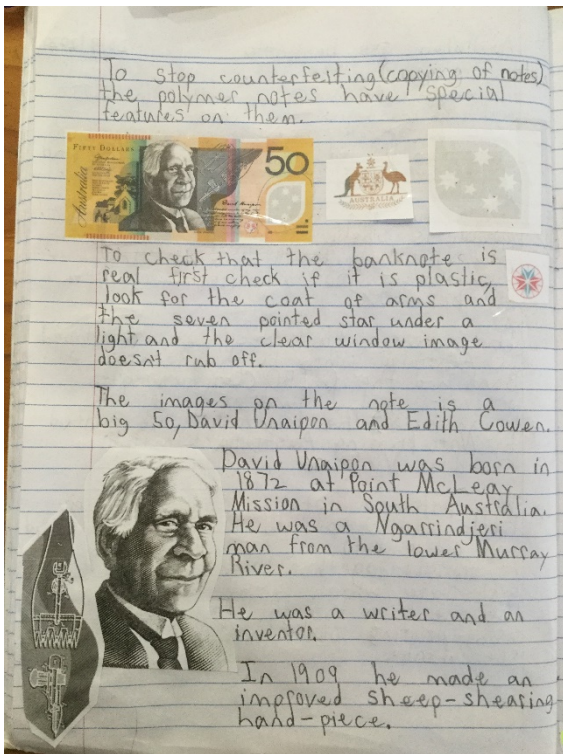 To stop counterfeiting (copying of notes)
the polymer notes have special
features on them.
FIFTY DOLLARS
Australia
50
AUSTRALIA
To check that the banknote is
real first check if it is plastic,
look for the coat of arms and
the seven pointed star under a
light and the clear window image
doesn't rub off.
The images on the note is a
big 50, David Unaipon and Edith Cowen.
David Unaipon was born in
1872 at Point McLeay
Mission in South Australia.
He was a Ngarrindjeri
man from the lower Murray
River.
He was a writer and an
inventor.
In 1909 he made an
improved sheep-shearing
hand-piece.